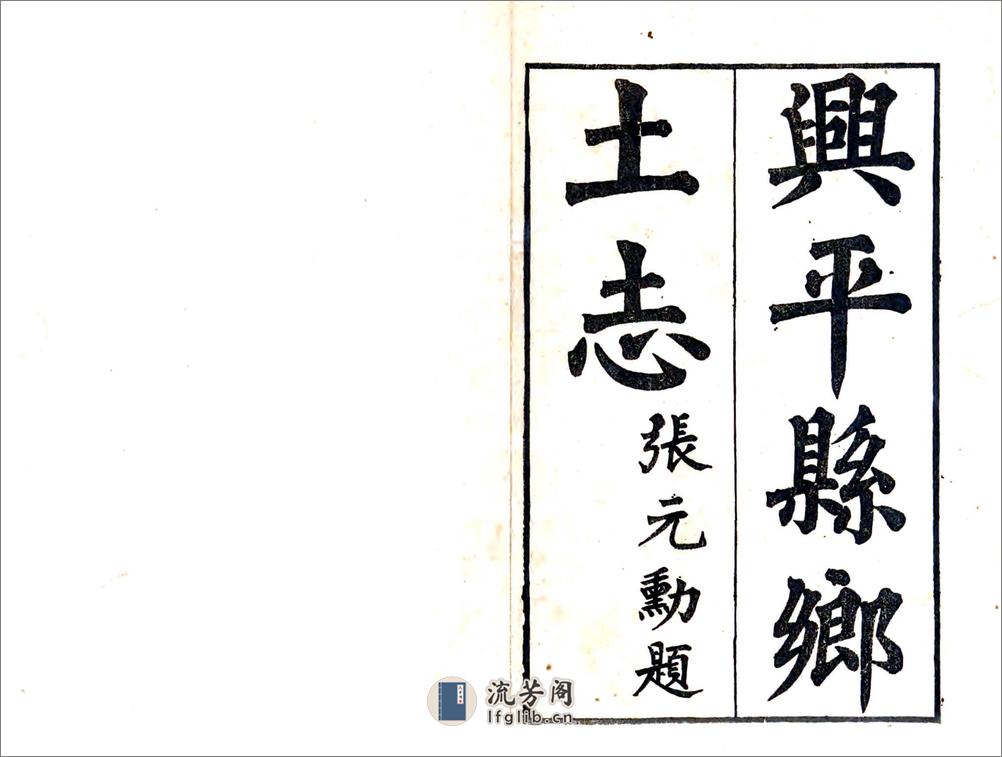 興平縣鄉
土志
張元勳題
流芳阁
lfglib.cn